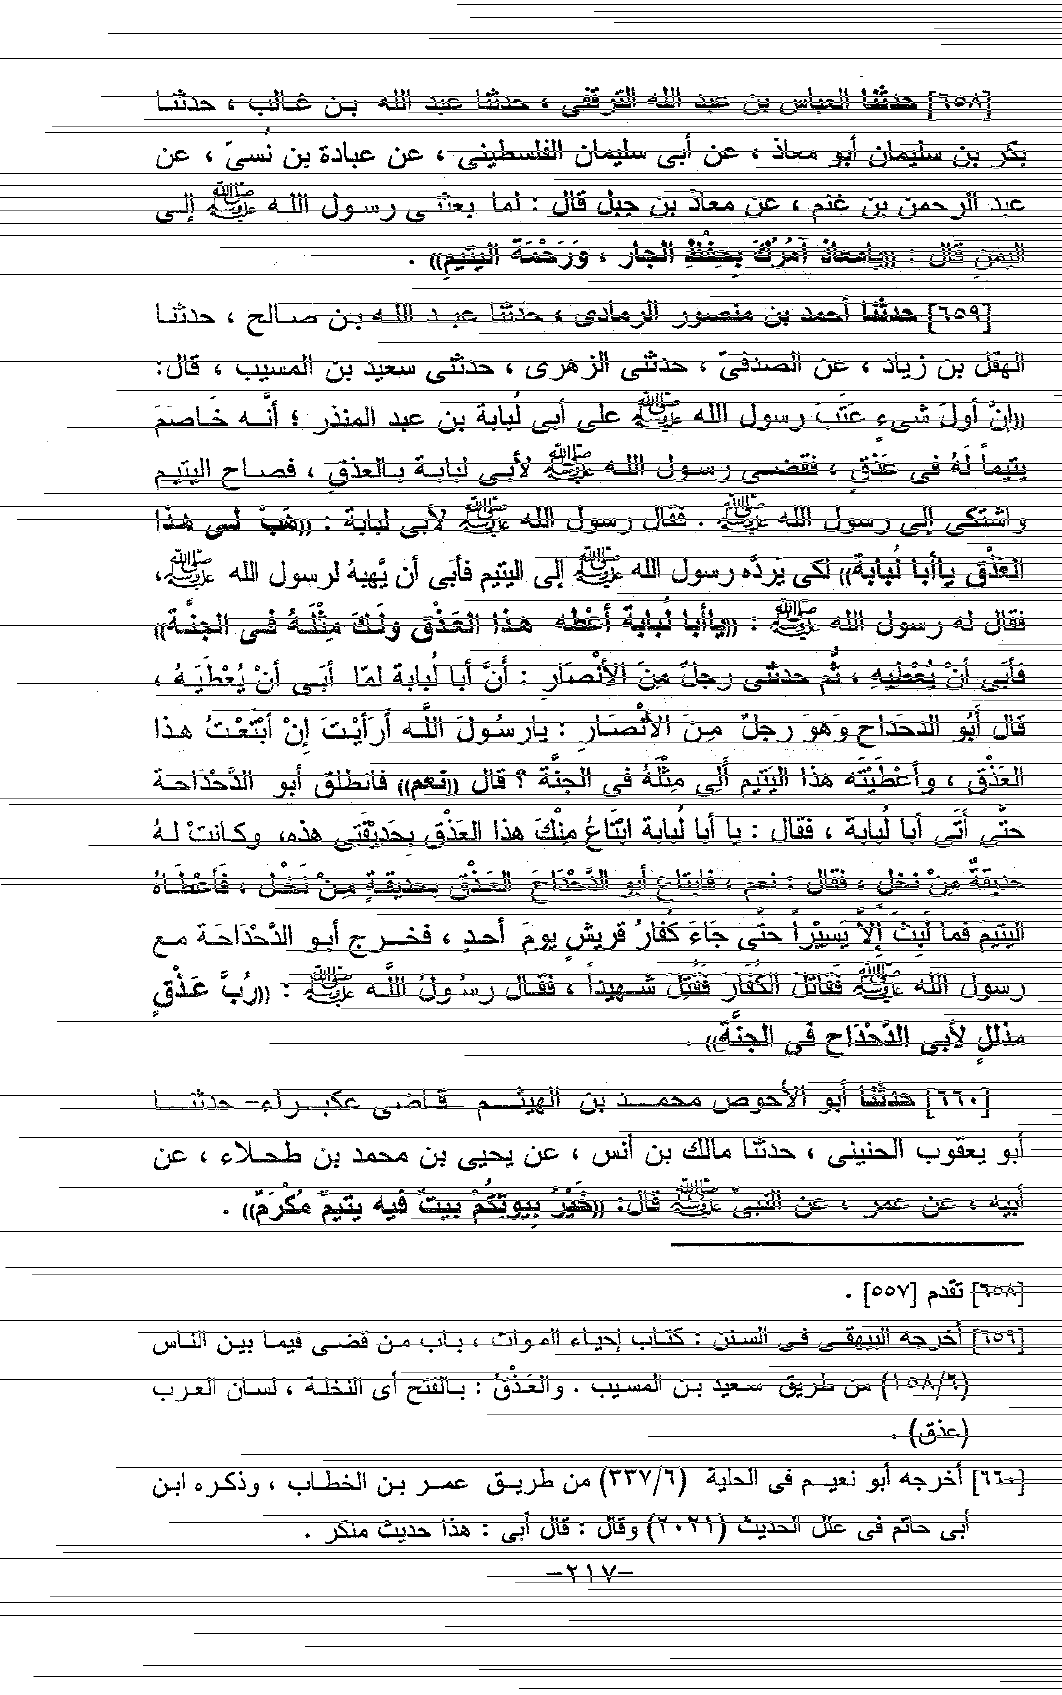 [٦٥٨] حدثنا العباس بن عبد الله الترقفى ، حدثنا عبد الله بن غالب ، حدثنا
بكر بن سليمان أبو معاذ ، عن أبى سليمان الفلسطينى ، عن عبادة بن نُسىّ ، عن
عبد الرحمن بن غنم ، عن معاذ بن جبل قال : لما بعثنى رسول الله ﷺ إلى
اليمن قال : ((يامعاذ آمُرُكَ بِحِفْظِ الجار ، وَرَحْمَةَ اليَتِيمِ)) .
[٦٥٩] حدثنا أحمد بن منصور الرمادى ، حدثنا عبد الله بن صالح ، حدثنا
الهقْل بن زياد ، عن الصدفىّ ، حدثنى الزهرى ، حدثنى سعيد بن المسيب ، قال:
((إنّ أولَ شىءٍ عَتَبَ رسول الله ﷺ على أبى لُبابة بن عبد المنذر ؛ أنَّه خَاصَمَ
يتيماً لَهُ فى عَذْقٍ ، فقضى رسول الله ﷺ لأبى لبابة بالعذقِ ، فصاح اليتيم
واشتكى إلى رسول الله ﷺ . فقال رسول الله ﷺ لأبى لبابة : ((هَبْ لى هذا
العَذْق ياأبا لُبابة)) لكى يردَّه رسول الله ﷺ إلى اليتيم فأبَى أن يَّهبهُ لرسول الله ﷺ،
فقال له رسول الله ﷺ : ((ياأبا لُبابة أعْطه هذا العَذْق ولَكَ مِثْلَهُ فى الجنَّة))
فأبَى أنْ يُعْطيهِ ، ثُم حدثنى رجلٌ مِنَ الأنْصَارِ : أنَّ أبا لُبابة لمّا أبَى أنْ يُعْطَيَهُ ،
قال أَبُو الدحدَاح وَهوَ رجلٌ مِنَ الأنْصَارِ : يارسُولَ اللَّه أرَأيْتَ إنْ ابْتَعْتُ هذا
العَذْق ، وأعْطَيْتَه هذا اليَتيم أَلِى مِثْلَهُ فى الجنَّة ؟ قال ((نعم)) فانطلق أبو الدَّحْدَاحة
حتَّى أتَى أبا لُبابة ، فقال : يا أبا لُبابة ابْتَاعُ مِنْكَ هذا العَذْق بِحَديْقَتِى هذه، وكانتْ لهُ
حديقةٌ مِنْ نخل ، فقال : نعم ، فابتاع أبو الدَّحْدَاحَ العَذْق بحديقةٍ مِنْ نَخْل ، فَأعْطَاهُ
اليَتِيمَ فما لَبِثَ إلاَّ يَسيْراً حتَّى جاءَ كُفارُ قريشٍ يومَ أحدٍ ، فخرج أبو الدَّحْدَاحَة مع
رسول الله ﷺ فَقَاتَلَ الكُفَارَ فَقُتِلَ شهيداً ، فقال رسُولُ اللَّه ﷺ : ((رُبَّ عَذْقٍ
مذللٍ لأبى الدَّحْدَاح فى الجنَّة)) .
[٦٦٠] حدثنا أبو الأحوص محمد بن الهيثم قاضى عكبراء- حدثنا
أبو يعقوب الحنينى ، حدثنا مالك بن أنس ، عن يحيى بن محمد بن طحلاء ، عن
أبيه ، عن عمر ، عن النبىّ ﷺ قال: ((خَيْرُ بيوتِكُمْ بيتٌ فيه يتيمٌ مُكْرَمٌ)) .
[٦٥٨] تقدم [٥٥٧] .
[٦٥٩] أخرجه البيهقى فى السنن : كتاب إحياء الموات ، باب من قضى فيما بين الناس
(١٥٨/٦) من طريق سعيد بن المسيب . والعَذْقُ : بالفتح أى النخلة ، لسان العرب
(عذق) .
[٦٦٠] أخرجه أبو نعيم فى الحلية (٣٣٧/٦) من طريق عمر بن الخطاب ، وذكره ابن
أبى حاتم فى علل الحديث (٢٠٢١) وقال : قال أبى : هذا حديث منكر .
-٢١٧-